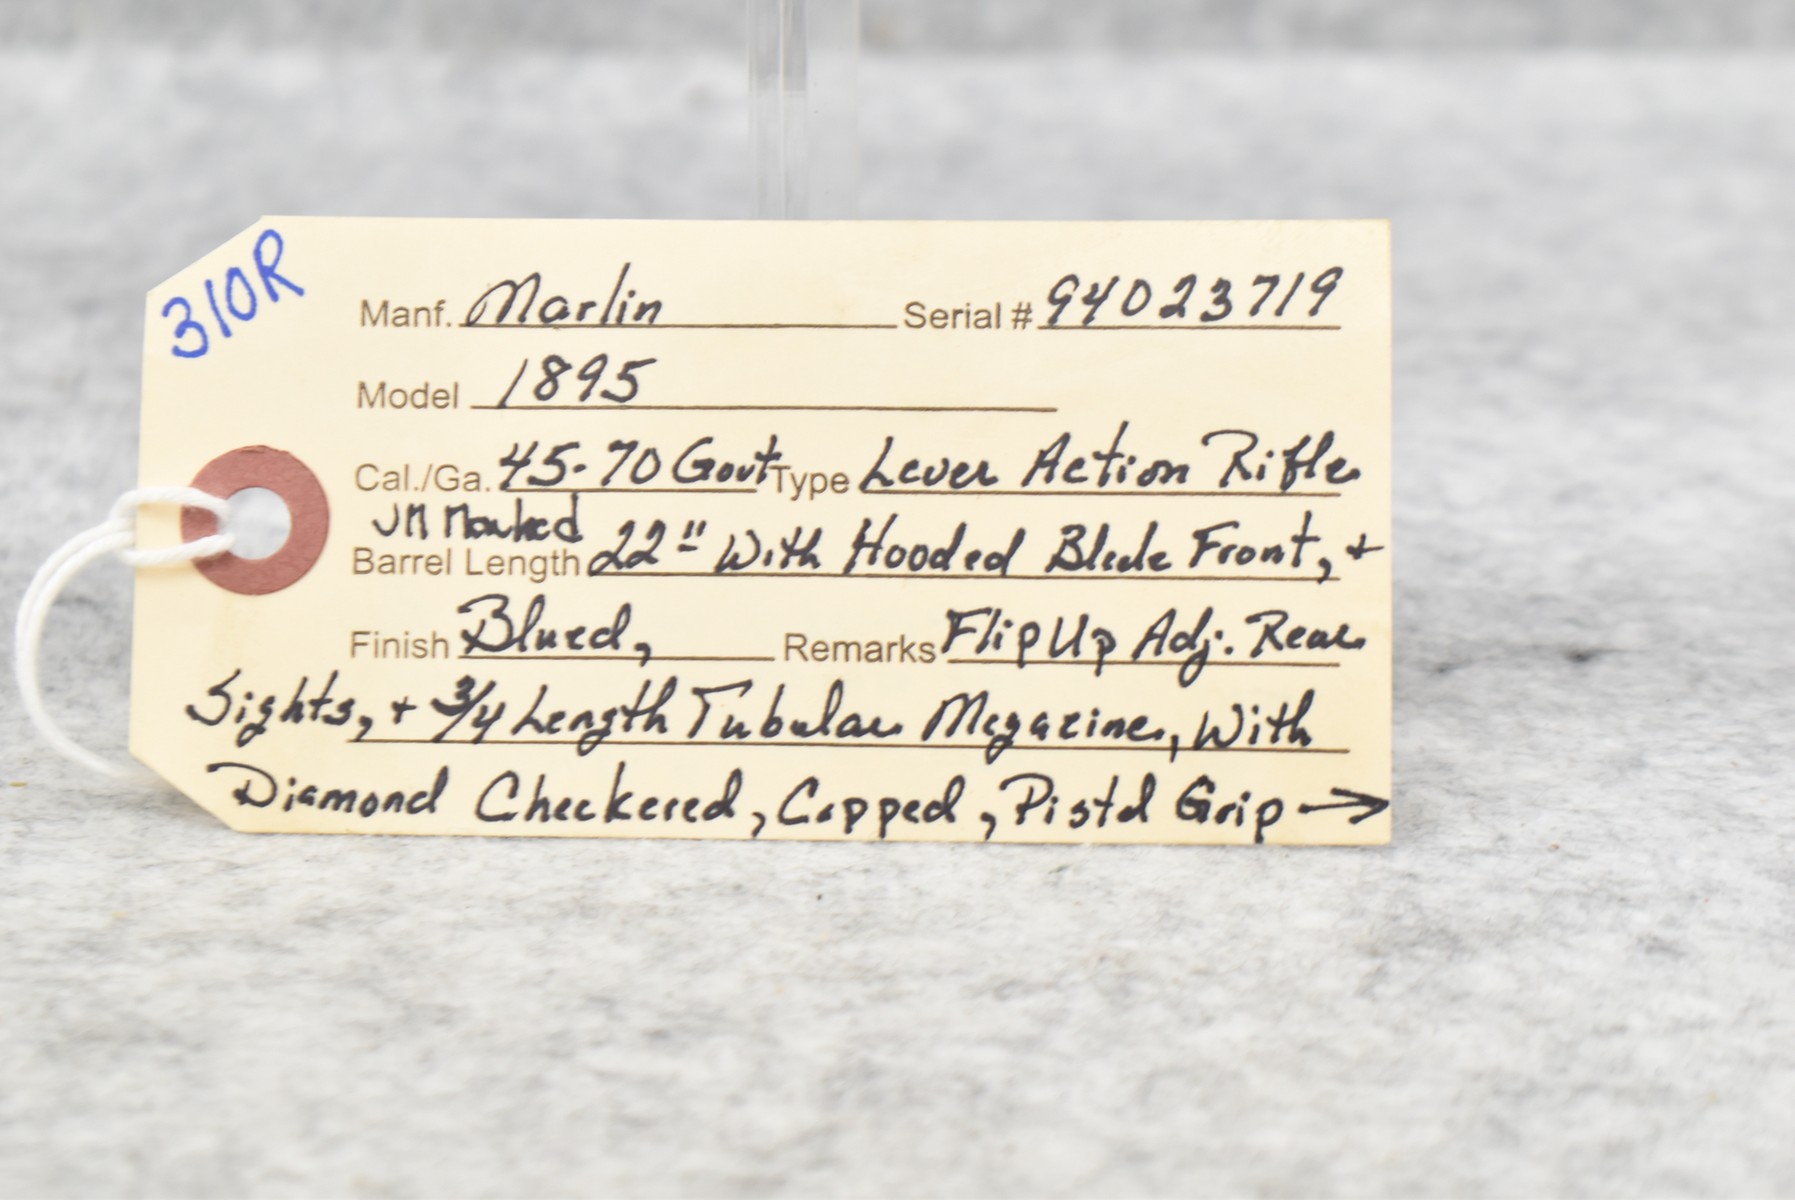 310R
Manf. Marlin Serial # 94023719
Model 1895
Cal./Ga. 45-70 Govt Type Lever Action Rifle
JM Marked
Barrel Length 22" With Hooded Blade Front, +
Finish Blued, Remarks Flip Up Adj. Rear
Sights, + 3/4 Length Tubular Magazine, With
Diamond Checkered, Capped, Pistol Grip →